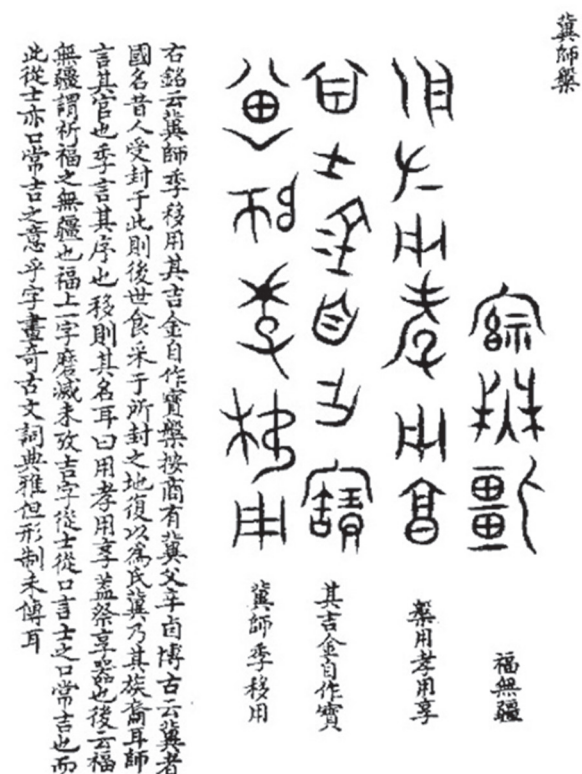 冀師槃
冀師季移用
其吉金自作寶
槃用孝用享
福無疆
右銘云冀師季移用其吉金自作寶槃按商有冀父辛卣博古云冀者
國名昔人受封于此則後世食采于所封之地復以為氏冀乃其族裔耳師
言其官也季言其序也移則其名耳曰用孝用享蓋祭享器也後云福
無疆謂祈福之無疆也福上一字磨滅未攷吉字從士從口言士之口常吉也而
此從士亦口常吉之意乎字畫奇古文詞典雅但形制未傳耳